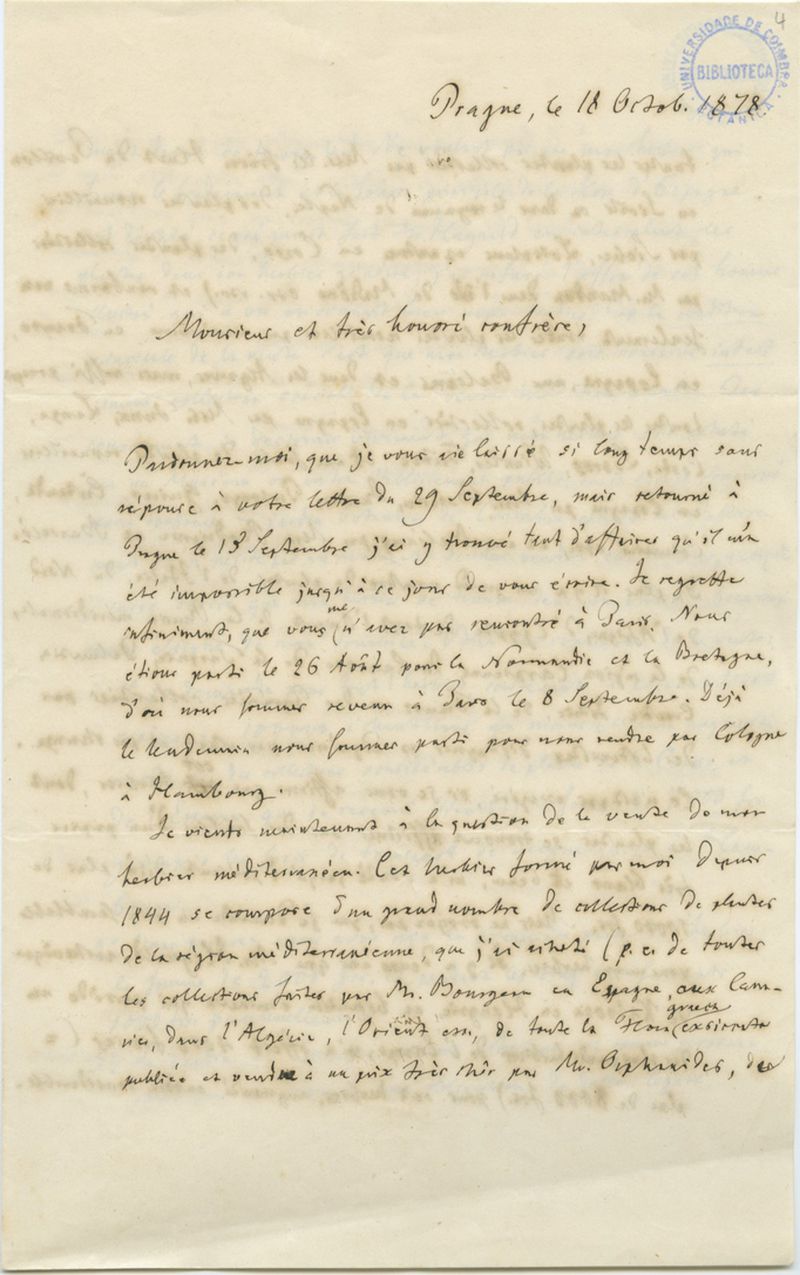 4
UNIVERSIDADE DE COIMBRA
BIBLIOTECA
BOTANICA
Prague, le 18 Octob. 1878.
Monsieur et très honoré confrère,
Pardonnez-moi, que je vous aie laissé si long temps sans
réponse à votre lettre du 29 Septembre, mais retourné à
Prague le 13 Septembre j'ai y trouvé tant d'affaires qu'il m'a
été impossible jusqu'à ce jour de vous écrire. Je regrette
infiniment, que vous me n'avez pas rencontré à Paris. Nous
étions parti le 26 Août pour la Normandie et la Bretagne,
d'où nous sommes revenu à Paris le 8 Septembre. Déjà
le lendemain nous sommes parti pour nous rendre par Cologne
à Hambourg.
Je viens maintenant à la question de la vente de mon
herbier méditerranéen. Cet herbier formé par moi depuis
1844 se compose d'un grand nombre de collections de plantes
de la région méditerranéenne, que j'ai acheté (p. e. de toutes
les collections faites par Mr. Bourgeau en Espagne, aux Cana-
ries, dans l'Algérie, l'Orient, de toute la Flora graeca exsiccata
publiée et vendue à un prix très chèr par Mr. Orphanides, de